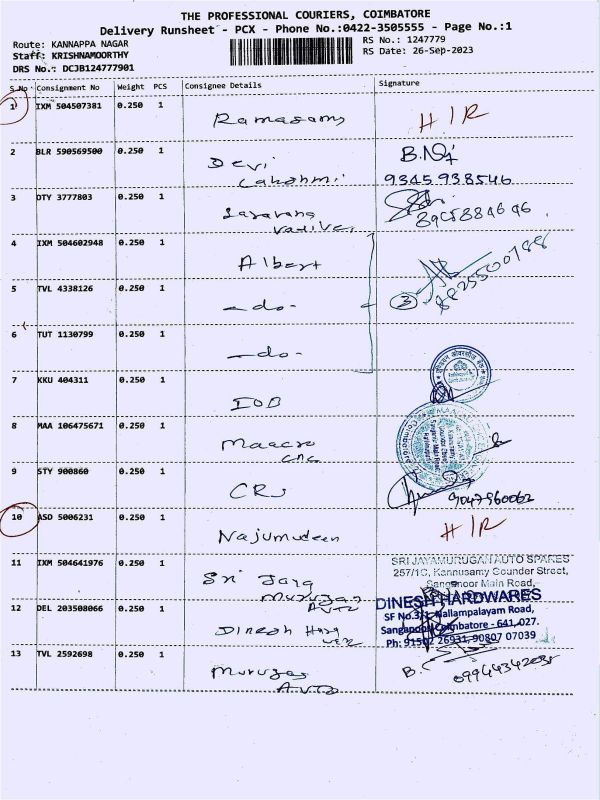 THE PROFESSIONAL COURIERS, COIMBATORE
Delivery Runsheet - PCX - Phone No.:0422-3505555 - Page No.:1
Route: KANNAPPA NAGAR
RS No.: 1247779
Staff: KRISHNAMOORTHY
RS Date: 26-Sep-2023
DRS No.: DCJB124777901
S.No Consignment No Weight PCS Consignee Details Signature
1 IXM 504507381 0.250 1 Ramasamy H/R
2 BLR 590569500 0.250 1 Devi
9345938546
3 DTY 3777803 0.250 1
4 IXM 504602948 0.250 1 Albert
5 TVL 4338126 0.250 1 -do- 3
6 TUT 1130799 0.250 1 -do-
7 KKU 404311 0.250 1 IOB
8 MAA 106475671 0.250 1
9 STY 900860 0.250 1 9047960062
10 ASD 5006231 0.250 1 Najumudeen H/R
11 IXM 504641976 0.250 1 Sri Jaya
Murugan
Auto
SRI JAYAMURUGAN AUTO SPARES
257/1C, Kannusamy Gounder Street,
Sanganoor Main Road,
12 DEL 203508066 0.250 1 Dinesh Hard
DINESH HARDWARES
SF No.3/ Nallampalayam Road,
Sanganoor, Coimbatore - 641 027.
Ph: 26931, 90807 07039
13 TVL 2592698 0.250 1 Murugan
Auto